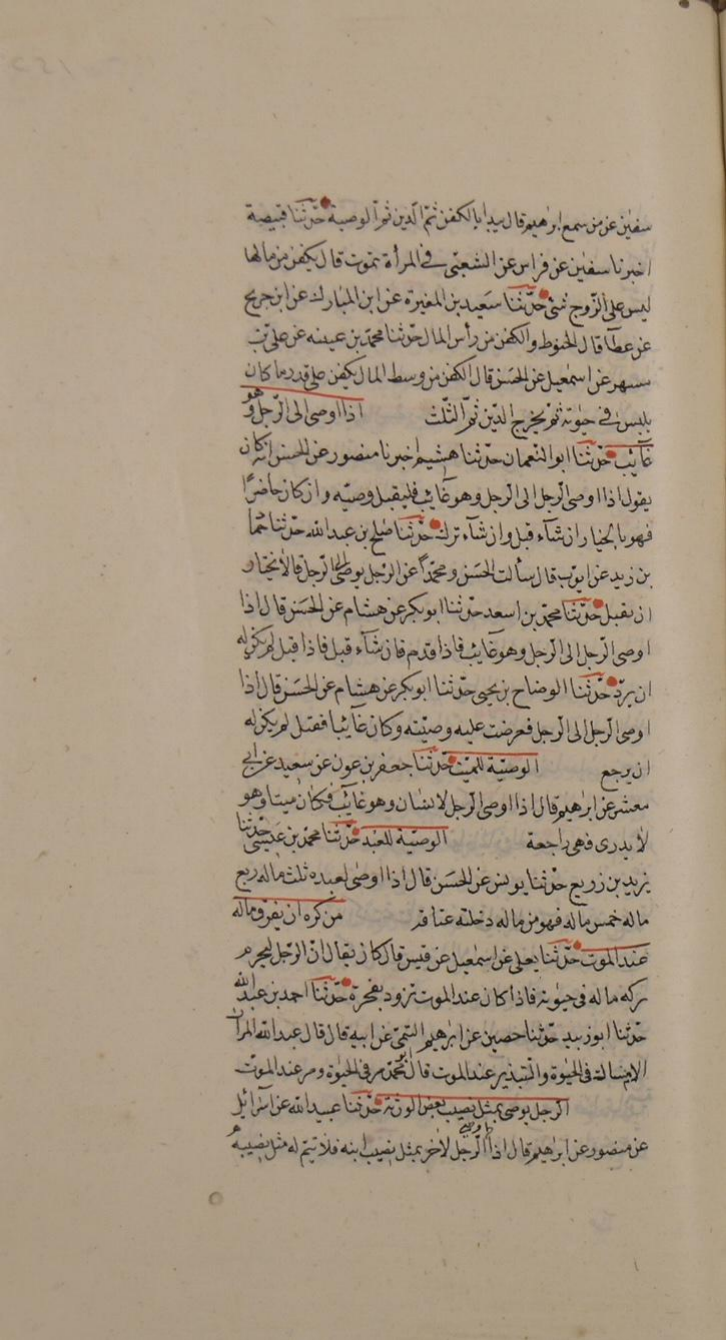 سفين عن من سمع ابرهيم قال يبدا بالكفن ثم الدين ثم الوصية حدثنا قبيصة
اخبرنا سفين عن فراس عن الشعبي في المرأة تموت قال يكفن من مالها
ليس على الزوج شئ حدثنا سعيد بن المغيرة عن ابن المبارك عن ابن جريج
عن عطا قال الحنوط والكفن من رأس المال حدثنا محمد بن عيينه عن علي بن
مسهر عن اسمعيل عن الحسن قال الكفن من وسط المال يكفن على قدر ما كان
يلبس في حيوته ثم يخرج الدين ثم الثلث اذا اوصى الى الرجل وهو
غآئب حدثنا ابو النعمان حدثنا هشيم اخبرنا منصور عن الحسن انه كان
يقول اذا اوصى الرجل الى الرجل وهو غآئب فليقبل وصيته وان كان حاضرا
فهو بالخيار ان شآء قبل وان شآء ترك حدثنا صلح بن عبد الله حدثنا حما
بن زيد عن ايوب قال سألت الحسن ومحمدا عن الرجل يوصى الى الرجل قالا نختار
ان يقبل حدثنا محمد بن اسعد حدثنا ابو بكر عن هشام عن الحسن قال اذا
اوصى الرجل الى الرجل وهو غآئب فاذا قدم فان شآء قبل فاذا قبل لم يكن له
ان يرد حدثنا الوضاح بن يحيى حدثنا ابو بكر عن هشام عن الحسن قال اذا
اوصى الرجل الى الرجل فعرضت عليه وصيته وكان غآئبا فقبل لم يكن له
ان يرجع الوصية للميت حدثنا جعفر بن عون عن سعيد عن ابي
معشر عن ابرهيم قال اذا اوصى الرجل لانسان وهو غآئب فكان ميتا وهو
لا يدرى فهى راجعة الوصية للعبد حدثنا محمد بن عيسى حدثنا
يزيد بن زريع حدثنا يونس عن الحسن قال اذا اوصى لعبده ثلث ماله ربع
ماله خمس ماله فهو من ماله دخلته عتاقه من كره ان يفرق ماله
عند الموت حدثنا يعلى عن اسمعيل عن قيس قال كان يقال ان الرجل ليحرم
بركه ماله فى حيوته فاذا كان عند الموت تزود بفجرة حدثنا احمد بن عبد الله
حدثنا ابو زبيد حدثنا حصين عن ابرهيم التيمي عن ابيه قال قال عبد الله المران
الامساك فى الحيوة والتبذير عند الموت قال ابو محمد مر في الحيوة ومر عند الموت
الرجل يوصى بمثل نصيب بعض الورثة حدثنا عبيد الله عن اسرآئيل
عن منصور عن ابرهيم قال اذا اوصى الرجل لاخر بمثل نصيب ابنه فلا تتم له مثل نصيبه